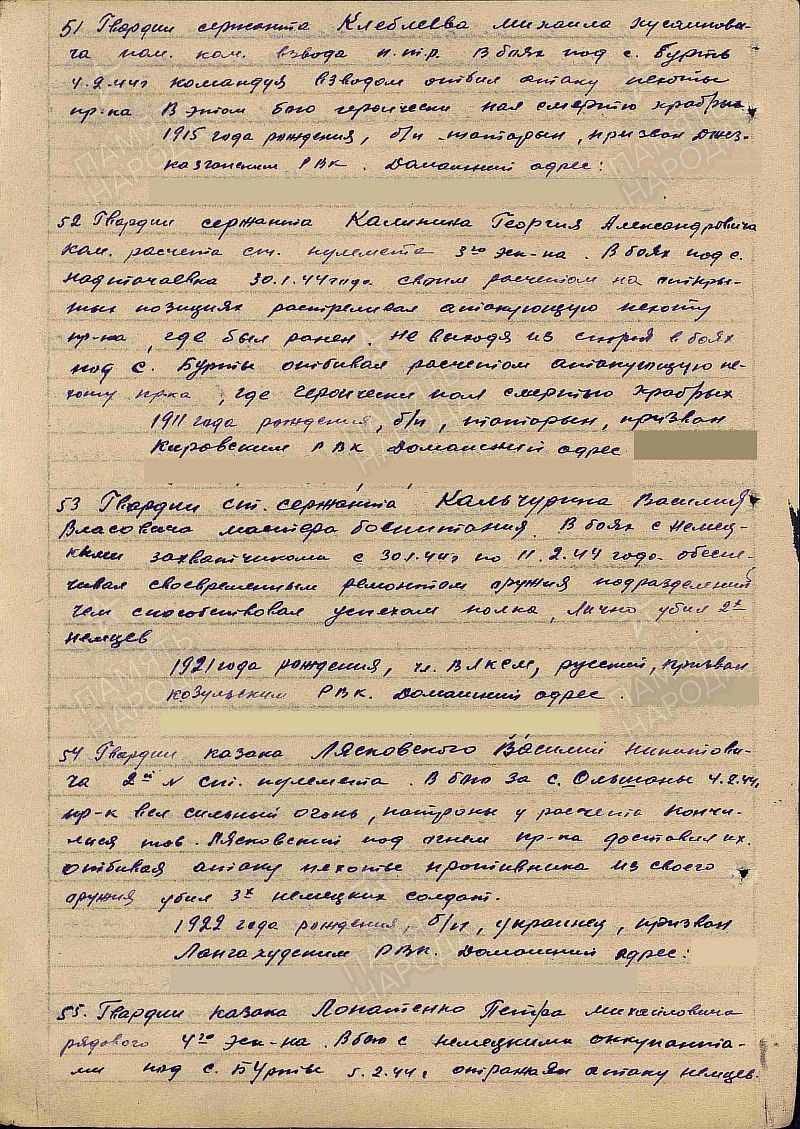 51 Гвардии сержанта Клеблеева Михаила Хусаинови-
ча пом. ком. взвода п.т.р. В боях под с. Бурты
4.2.44г командуя взводом отбил атаку пехоты
пр-ка В этом бою героически пал смертью храбрых
1915 года рождения, б/п татарин, призван Джез-
казганским РВК. Домашний адрес:
52 Гвардии сержанта Калинина Георгия Александровича
ком. расчета ст. пулемета 3го эск-на. В боях под с.
Надточаевка 30.1.44 года своим расчетом на откры-
тых позициях растреливал атакующую пехоту
пр-ка, где был ранен. Не выходя из строя в боях
под с. Бурты отбивал расчетом атакующую пе-
хоту пр-ка, где героически пал смертью храбрых
1911 года рождения, б/п, татарин, призван
Кировским РВК Домашний адрес
53 Гвардии ст. сержанта Кальчурина Василия
Власовича мастера боепитания. В боях с немец-
кими захватчиками с 30.1.44г по 11.2.44 года обеспе-
чивал своевременным ремонтом оружия подразделений
чем способствовал успехам полка, лично убил 2х
немцев
1921 года рождения, чл. ВЛКСМ, русский, призван
Козульским РВК. Домашний адрес.
54 Гвардии казака Лясковского Василий Никитови-
ча 2й N ст. пулемета. В бою за с. Ольшаны 4.2.44г
пр-к вел сильный огонь, патроны у расчета кончи-
лися тов. Лясковский под огнем пр-ка доставил их.
отбивая атаку пехоты противника из своего
оружия убил 3х немецких солдат.
1922 года рождения, б/п, украинец, призван
РВК. Домашний адрес:
55. Гвардии казака Лопатенко Петра Михайловича
рядового 4го эск-на. В бою с немецкими оккупанта-
ми под с. Бурты 5.2.44г отражая атаку немцев